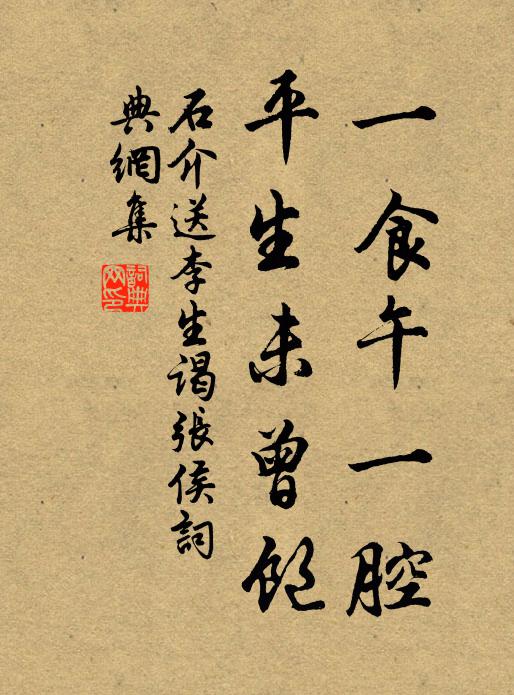 一食午一腔
平生未曾飽
石介送李生謁張侯詞
典網集
詞典網印